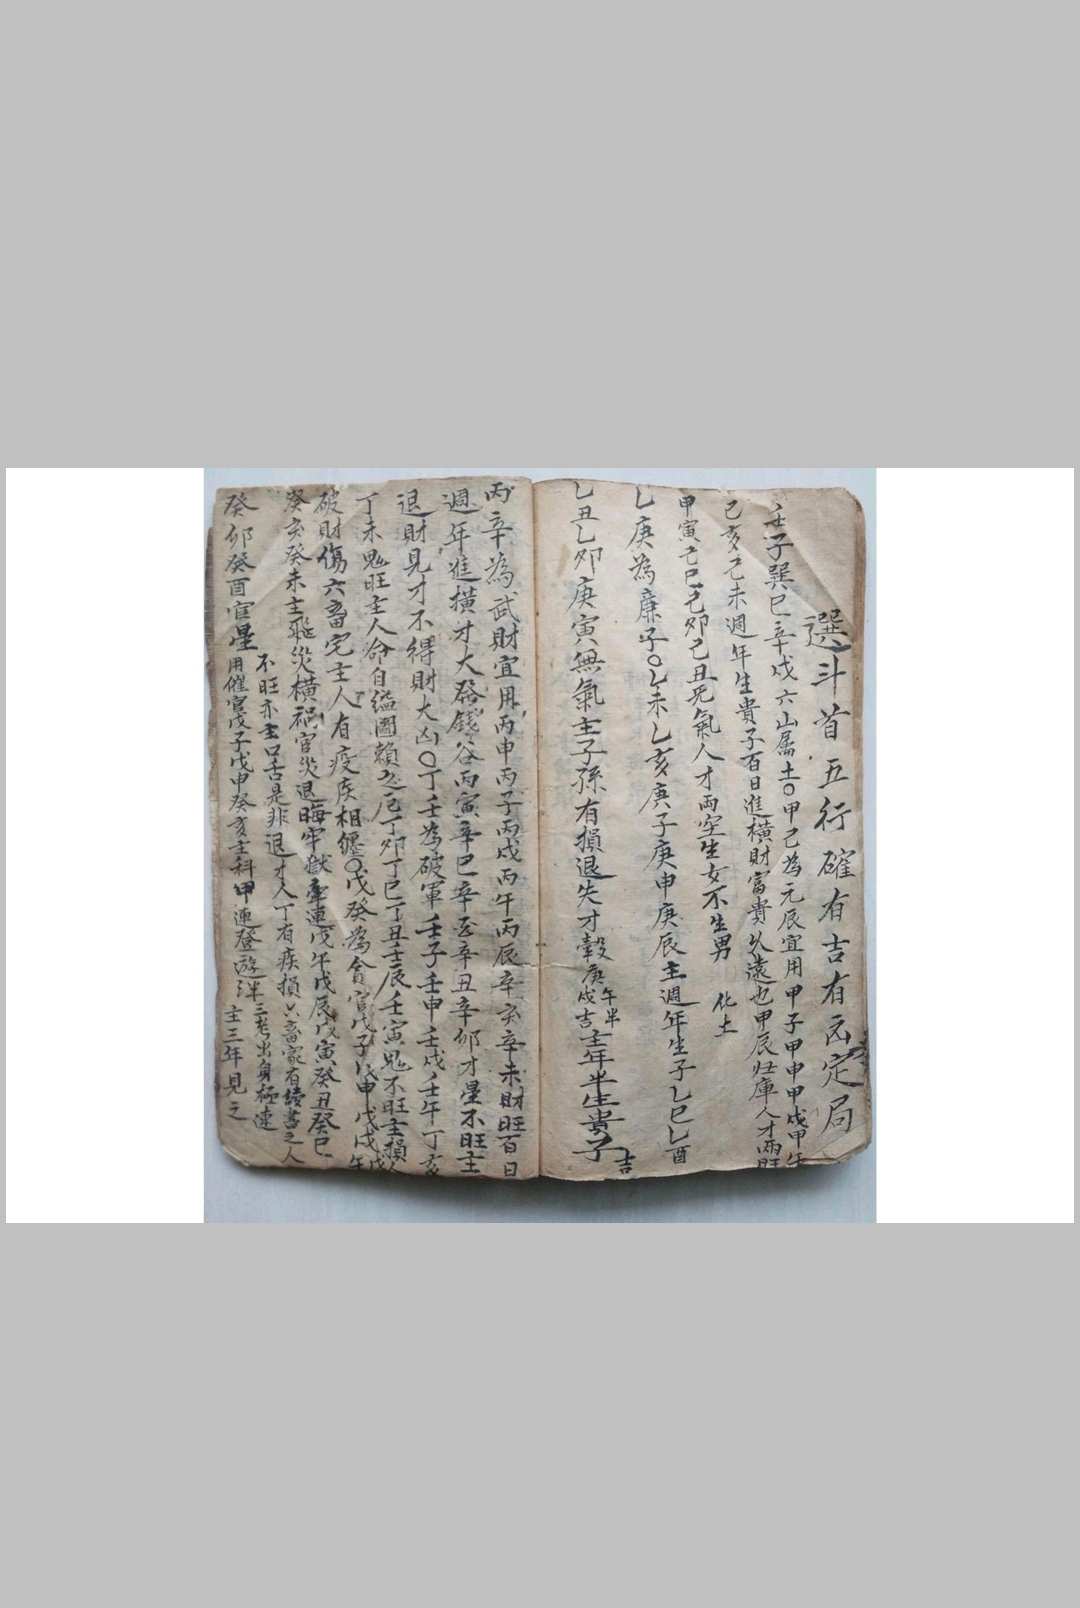 選斗首五行確有吉有凶定局
壬子巽巳辛戌六山屬土〇甲己為元辰宜用甲子甲申甲戌甲午
己亥己未週年生貴子百日進橫財富貴久遠也甲辰归庫人才兩旺
甲寅己巳己卯己丑死氣人才兩空生女不生男 化土
乙庚為廉子〇乙未乙亥庚子庚申庚辰主週年生子乙巳乙酉
乙丑乙卯庚寅無氣主子孫有損退失才穀庚戌吉午半主年半生貴子吉
丙辛為武財宜用丙申丙子丙戌丙午丙辰辛亥辛未財旺百日
週年進橫才大發錢谷丙寅辛巳辛丑辛卯才星不旺主
退財見才不得財大凶〇丁壬為破軍壬子壬申壬戌壬午丁亥
丁未鬼旺主人命自缢圖賴之厄丁卯丁巳丁丑壬辰壬寅鬼不旺主損人
破財傷六畜宅主人有疫疾相纏〇戊癸為貪官戊子戊申戊戌戊午
癸亥癸未主飛災橫禍官災退晦牢獄牽連戊午戊辰戊寅癸丑癸巳
不旺亦主口舌是非退才人丁有疾損六畜家有續書之人
癸卯癸酉官星用催官戊子戊申癸亥主科甲連登遊泮三考出身極連
主三年見之